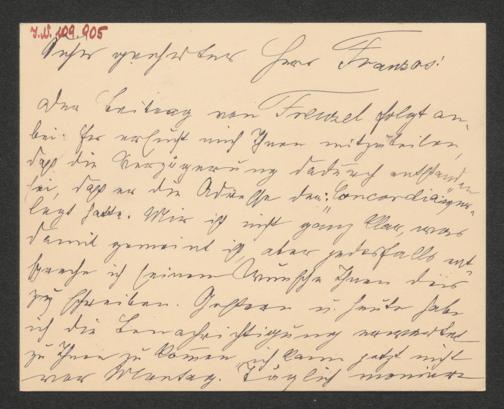 I.N. 109.905
Sehr geehrter Herr Franzos!
Der Beitrag von Frenzel folgt an-
bei. Er ersucht mich Ihnen mitzuteilen,
daß die Verzögerung dadurch entstanden
sei, daß er die Adresse der „Concordia" ver-
legt hatte. Mir ist nicht ganz klar, was
damit gemeint ist, aber jedesfalls ent-
spreche ich seinem Wunsche Ihnen dies
zu schreiben. Gestern u. heute habe
ich die Benachrichtigung erwartet
zu Ihnen zu kommen, ich kann jetzt nicht
vor Montag. Täglich